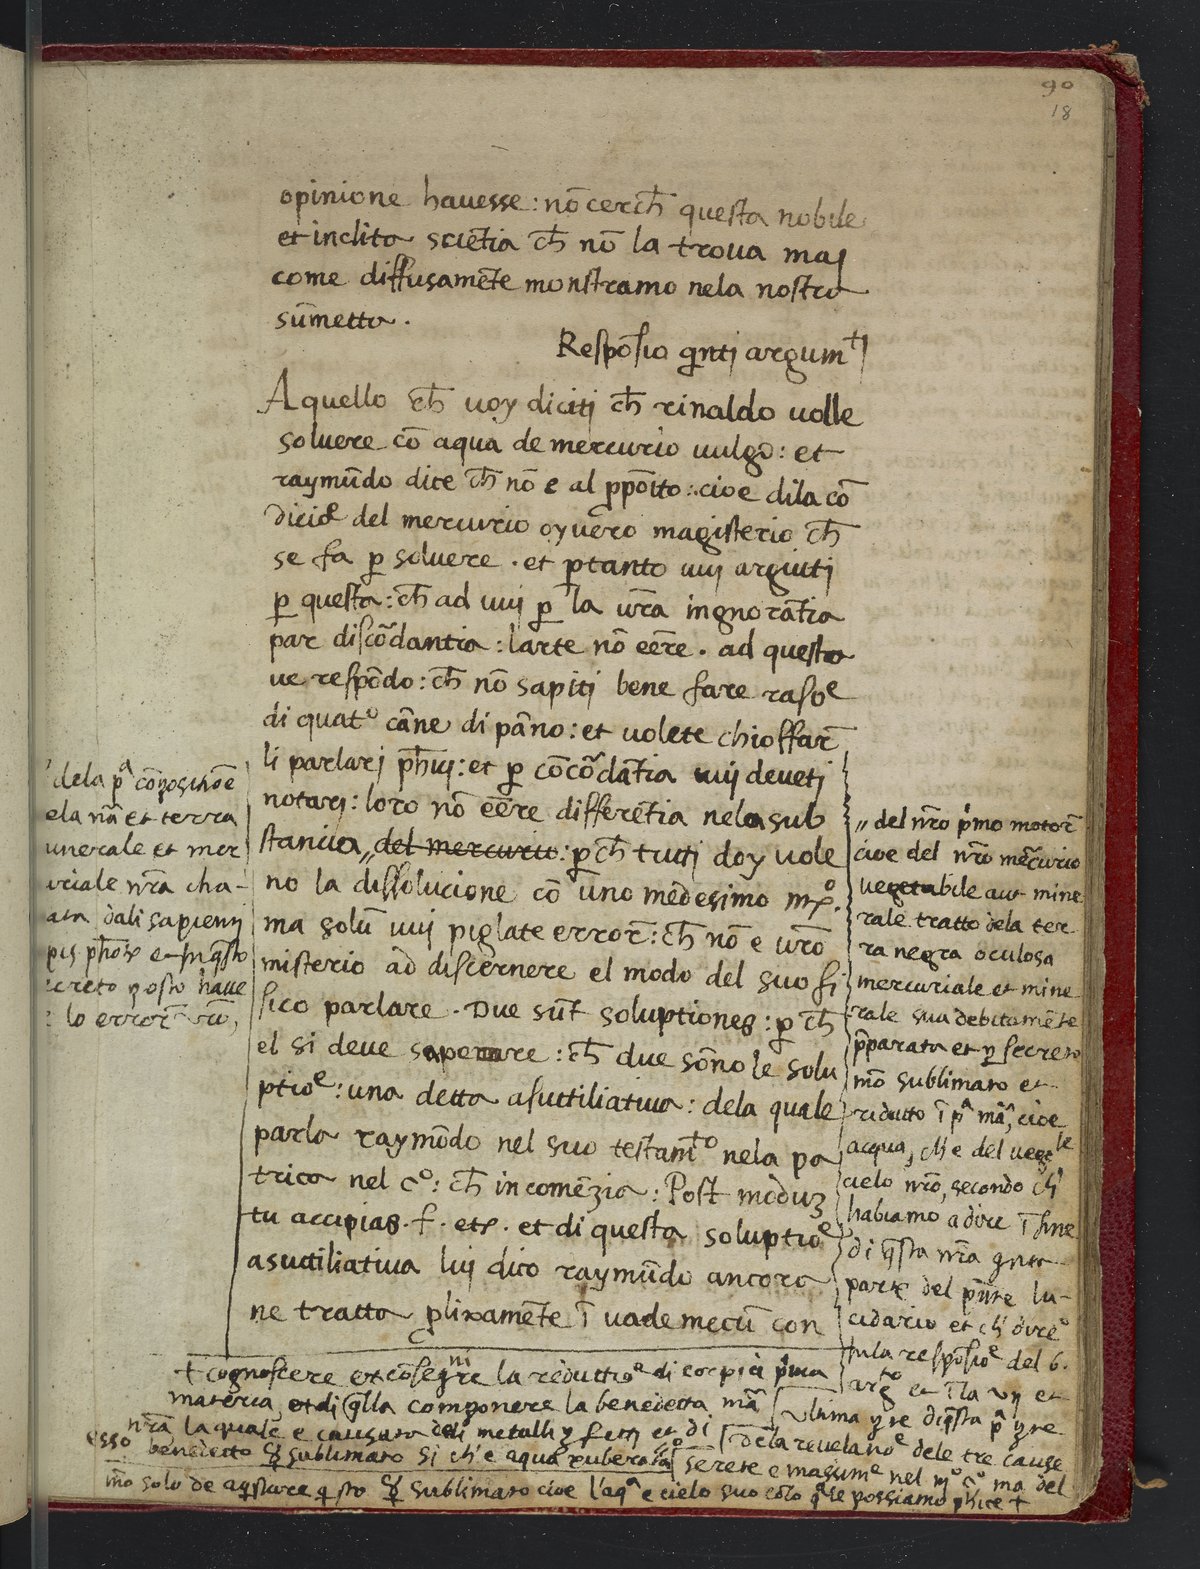 90
18
opinione hauesse: nō cerch̄ questa nobile
et inclita sciētia ch̄ nō la troua maj
come diffusamēte monstramo nela nostra
sūmetta.
Respōsio q̄nti argumᵗj
A quello ch̄ uoy dicitj ch̄ rinaldo uolle
soluere cō aqua de mercurio uulgo: et
raymūdo dice ch̄ nō e al ꝓpoīto: cioe dila cō
diciōᵉ del mercurio oyuero magisterio ch̄
se fa ꝑ soluere. et ꝑtanto uuj arguitj
ꝑ questa: ch̄ ad uuj ꝑ la ur̄a ingnorātia
par discōdantia: larte nō eēre. ad questa
ue respōdo: ch̄ nō sapitj bene fare rasoᵉ
di quatᵒ cāne di pāno: et uolete chioffar̄
li parlarj ph̄uj: et ꝑ cōcōdātia uuj devetj
notarj: loro nō eēre differētia nela sub
stancia„ del mercurio: ꝑch̄ tutti doy uole
no la dissolucione cō uno medesimo mᷓᵒ.
ma solū uuj piglate error̄: ch̄ nō e ur̄o
misterio ad discernere el modo del suo fi
sico parlare. Due sūt soluptiones: ꝑ ch̄
el si deue sapere: ch̄ due sōno le solu
ptioᵉ: una detta asuttiliatiua: dela quale
parla raymōdo nel suo testamᵗᵒ nela pa
trica nel cᵒ: ch̄ incomēzia: Post modūz
tu accipias. f. etc. et di questa soluptioᵉ
asuttiliatiua luj dico raymūdo ancora
ne tratta ꝓlixamēte ī uade mecū con
dela pᵃ cōposiciōe
ela nr̄a et terra
unerale et mer
uriale nr̄a cha-
ata dali sapientj
lo error̄
„ del nr̄o pⁱmo motor̄
cioe del nr̄o mercurio
uegetabile aut mine
rale tratto dela ter
ra negra oculosa
mercuriale et mine
rale sua debitamēte
p̄parata et ꝑ secreto
mō sublimato et
riducto ī pᵃ mā, cioe
acqua, ch' e del uegᵇˡᵉ
cielo nr̄o, secondo ch'
habiamo a dire ī fine
di q̄sta nr̄a
parte del pn̄te lu-
cidario et ch' direᵒ
nela respōsioᵉ del 6.
argᵗᵒ et ī la
ultima
dela reuelatioᵉ dele tre cause
serete e maxumᵉ nel mᵒ cᵒ ma del
+ cognoscere et cōsegⁿⁱre la reductioᵉ di corpi ī pⁱma
materia, et di q̄lla componere la benedetta mā
nr̄a la quale e causata deli metallj
esso benedetto sublimato si ch' e aqua
mō solo de sublimato cioe l'aqᵃ e cielo suo possiamo